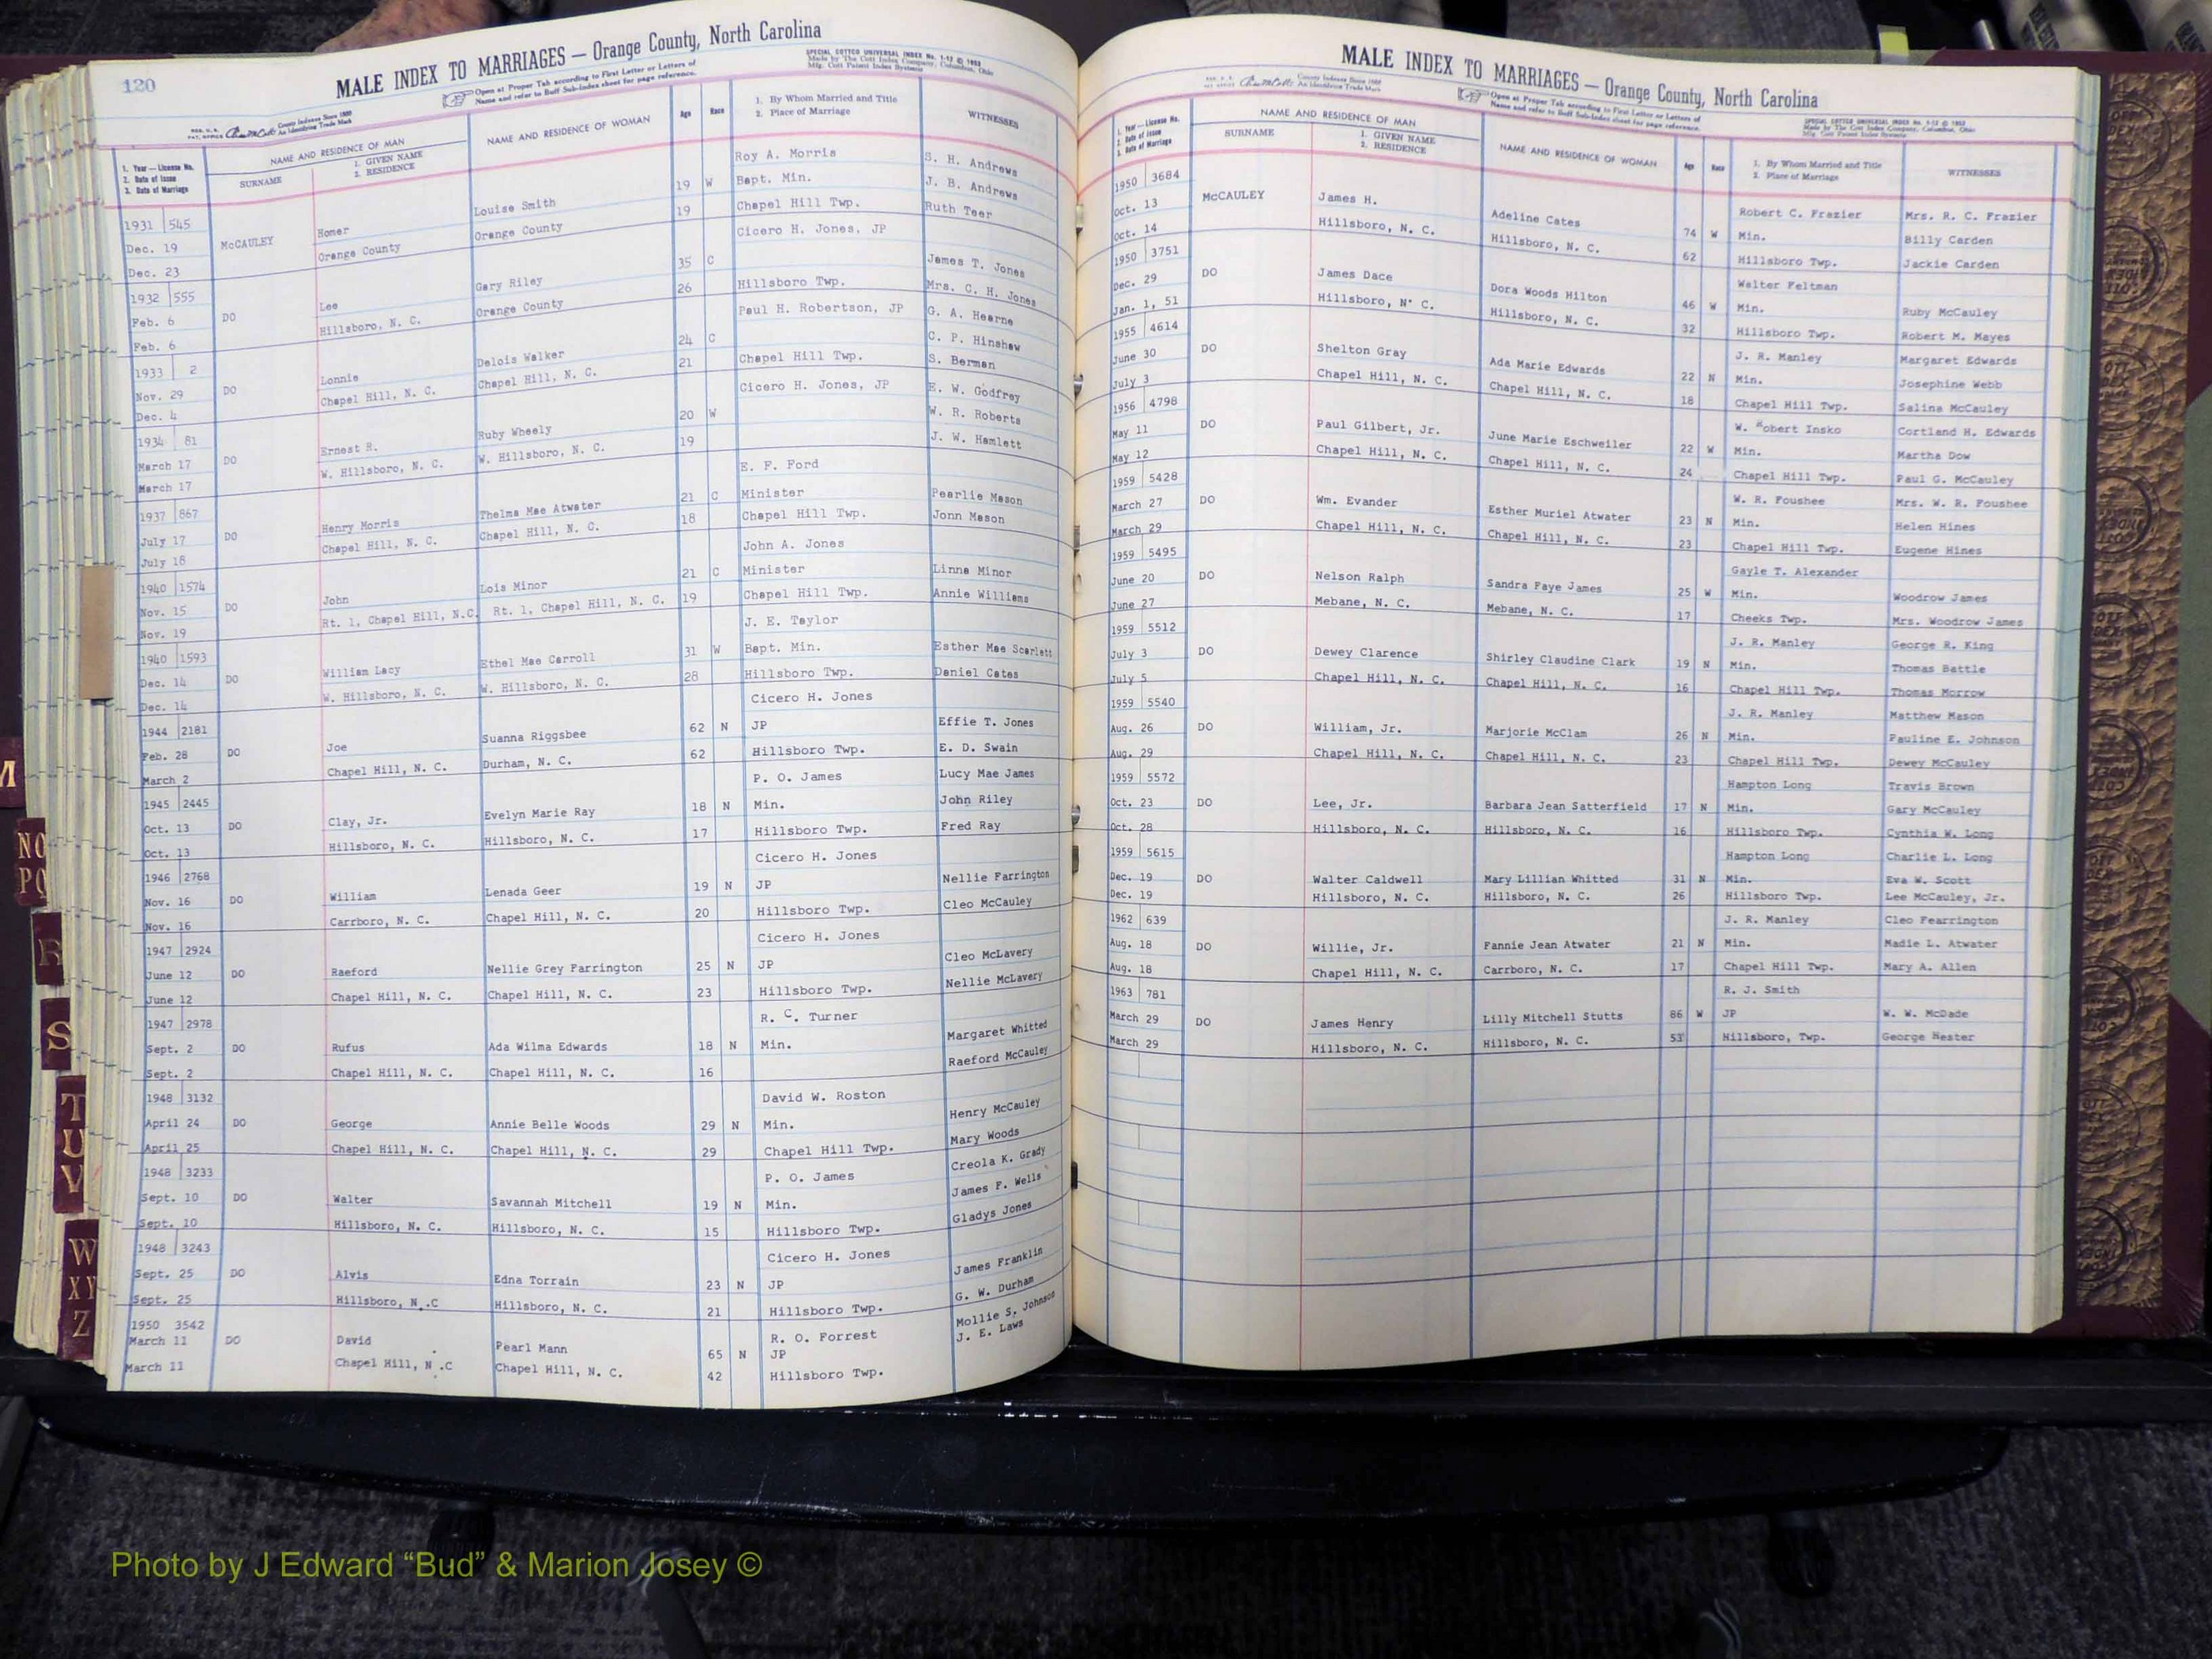 120
MALE INDEX TO MARRIAGES — Orange County, North Carolina
Open at Proper Tab according to First Letter or Letters of
Name and refer to Buff Sub-Index sheet for page reference.
SPECIAL COTTCO UNIVERSAL INDEX No. 1-12 © 1953
Made by The Cott Index Company, Columbus, Ohio
Mfg. Cott Patent Index Systems
County Indexes Since 1888
An Identifying Trade Mark
1. Year — License No.
2. Date of Issue
3. Date of Marriage
NAME AND RESIDENCE OF MAN
SURNAME
1. GIVEN NAME
2. RESIDENCE
NAME AND RESIDENCE OF WOMAN
Age
Race
1. By Whom Married and Title
2. Place of Marriage
WITNESSES
Roy A. Morris S. H. Andrews
1931 545 Louise Smith 19 W Bapt. Min. J. B. Andrews
Dec. 19 McCAULEY Homer Orange County 19 Chapel Hill Twp. Ruth Teer
Dec. 23 Orange County
Cicero H. Jones, JP
1932 555 Gary Riley 35 C James T. Jones
Feb. 6 DO Lee Orange County 26 Hillsboro Twp. Mrs. C. H. Jones
Feb. 6 Hillsboro, N. C.
Paul H. Robertson, JP G. A. Hearne
1933 2 Delois Walker 24 C C. P. Hinshaw
Nov. 29 DO Lonnie Chapel Hill, N. C. 21 Chapel Hill Twp. S. Berman
Dec. 4 Chapel Hill, N. C.
Cicero H. Jones, JP E. W. Godfrey
1934 81 Ruby Wheely 20 W W. R. Roberts
March 17 DO Ernest R. W. Hillsboro, N. C. 19 J. W. Hamlett
March 17 W. Hillsboro, N. C.
E. F. Ford
1937 867 Thelma Mae Atwater 21 C Minister Pearlie Mason
July 17 DO Henry Morris Chapel Hill, N. C. 18 Chapel Hill Twp. Jonn Mason
July 18 Chapel Hill, N. C.
John A. Jones
1940 1574 Lois Minor 21 C Minister Linna Minor
Nov. 15 DO John Rt. 1, Chapel Hill, N. C. 19 Chapel Hill Twp. Annie Williams
Nov. 19 Rt. 1, Chapel Hill, N.C.
J. E. Taylor
1940 1593 Ethel Mae Carroll 31 W Bapt. Min. Esther Mae Scarlett
Dec. 14 DO William Lacy W. Hillsboro, N. C. 28 Hillsboro Twp. Daniel Cates
Dec. 14 W. Hillsboro, N. C.
Cicero H. Jones
1944 2181 Suanna Riggsbee 62 N JP Effie T. Jones
Feb. 28 DO Joe Durham, N. C. 62 Hillsboro Twp. E. D. Swain
March 2 Chapel Hill, N. C.
P. O. James Lucy Mae James
1945 2445 Evelyn Marie Ray 18 N Min. John Riley
Oct. 13 DO Clay, Jr. Hillsboro, N. C. 17 Hillsboro Twp. Fred Ray
Oct. 13 Hillsboro, N. C.
Cicero H. Jones
1946 2768 Lenada Geer 19 N JP Nellie Farrington
Nov. 16 DO William Chapel Hill, N. C. 20 Hillsboro Twp. Cleo McCauley
Nov. 16 Carrboro, N. C.
Cicero H. Jones
1947 2924 Nellie Grey Farrington 25 N JP Cleo McLavery
June 12 DO Raeford Chapel Hill, N. C. 23 Hillsboro Twp. Nellie McLavery
June 12 Chapel Hill, N. C.
R. C. Turner
1947 2978 Margaret Whitted
Sept. 2 DO Rufus Ada Wilma Edwards 18 N Min. Raeford McCauley
Sept. 2 Chapel Hill, N. C. Chapel Hill, N. C. 16
1948 3132 David W. Roston
April 24 DO George Annie Belle Woods 29 N Min. Henry McCauley
April 25 Chapel Hill, N. C. Chapel Hill, N. C. 29 Chapel Hill Twp. Mary Woods
1948 3233 P. O. James Creola K. Grady
Sept. 10 DO Walter Savannah Mitchell 19 N Min. James F. Wells
Sept. 10 Hillsboro, N. C. Hillsboro, N. C. 15 Hillsboro Twp. Gladys Jones
1948 3243 Cicero H. Jones
Sept. 25 DO Alvis Edna Torrain 23 N JP James Franklin
Sept. 25 Hillsboro, N .C Hillsboro, N. C. 21 Hillsboro Twp. G. W. Durham
1950 3542 R. O. Forrest Mollie S. Johnson
March 11 DO David Pearl Mann 65 N JP J. E. Laws
March 11 Chapel Hill, N .C Chapel Hill, N. C. 42 Hillsboro Twp.
MALE INDEX TO MARRIAGES — Orange County, North Carolina
County Indexes Since 1888
An Identifying Trade Mark
Open at Proper Tab according to First Letter or Letters of
Name and refer to Buff Sub-Index sheet for page reference.
SPECIAL COTTCO UNIVERSAL INDEX No. 1-12 © 1953
Made by The Cott Index Company, Columbus, Ohio
Mfg. Cott Patent Index Systems
1. Year — License No.
2. Date of Issue
3. Date of Marriage
NAME AND RESIDENCE OF MAN
SURNAME
1. GIVEN NAME
2. RESIDENCE
NAME AND RESIDENCE OF WOMAN
Age
Race
1. By Whom Married and Title
2. Place of Marriage
WITNESSES
1950 3684 Robert C. Frazier Mrs. R. C. Frazier
Oct. 13 McCAULEY James H. Adeline Cates 74 W Min. Billy Carden
Oct. 14 Hillsboro, N. C. Hillsboro, N. C. 62 Hillsboro Twp. Jackie Carden
1950 3751 Walter Feltman
Dec. 29 DO James Dace Dora Woods Hilton 46 W Min. Ruby McCauley
Jan. 1, 51 Hillsboro, N. C. Hillsboro, N. C. 32 Hillsboro Twp. Robert M. Mayes
1955 4614 J. R. Manley Margaret Edwards
June 30 DO Shelton Gray Ada Marie Edwards 22 N Min. Josephine Webb
July 3 Chapel Hill, N. C. Chapel Hill, N. C. 18 Chapel Hill Twp. Salina McCauley
1956 4798 W. Robert Insko Cortland H. Edwards
May 11 DO Paul Gilbert, Jr. June Marie Eschweiler 22 W Min. Martha Dow
May 12 Chapel Hill, N. C. Chapel Hill, N. C. 24 Chapel Hill Twp. Paul G. McCauley
1959 5428 W. R. Foushee Mrs. W. R. Foushee
March 27 DO Wm. Evander Esther Muriel Atwater 23 N Min. Helen Hines
March 29 Chapel Hill, N. C. Chapel Hill, N. C. 23 Chapel Hill Twp. Eugene Hines
1959 5495 Gayle T. Alexander
June 20 DO Nelson Ralph Sandra Faye James 25 W Min. Woodrow James
June 27 Mebane, N. C. Mebane, N. C. 17 Cheeks Twp. Mrs. Woodrow James
1959 5512 J. R. Manley George R. King
July 3 DO Dewey Clarence Shirley Claudine Clark 19 N Min. Thomas Battle
July 5 Chapel Hill, N. C. Chapel Hill, N. C. 16 Chapel Hill Twp. Thomas Morrow
1959 5540 J. R. Manley Matthew Mason
Aug. 26 DO William, Jr. Marjorie McClam 26 N Min. Pauline E. Johnson
Aug. 29 Chapel Hill, N. C. Chapel Hill, N. C. 23 Chapel Hill Twp. Dewey McCauley
1959 5572 Hampton Long Travis Brown
Oct. 23 DO Lee, Jr. Barbara Jean Satterfield 17 N Min. Gary McCauley
Oct. 28 Hillsboro, N. C. Hillsboro, N. C. 16 Hillsboro Twp. Cynthia W. Long
1959 5615 Hampton Long Charlie L. Long
Dec. 19 DO Walter Caldwell Mary Lillian Whitted 31 N Min. Eva W. Scott
Dec. 19 Hillsboro, N. C. Hillsboro, N. C. 26 Hillsboro Twp. Lee McCauley, Jr.
1962 639 J. R. Manley Cleo Fearrington
Aug. 18 DO Willie, Jr. Fannie Jean Atwater 21 N Min. Madie L. Atwater
Aug. 18 Chapel Hill, N. C. Carrboro, N. C. 17 Chapel Hill Twp. Mary A. Allen
1963 781 R. J. Smith
March 29 DO James Henry Lilly Mitchell Stutts 86 W JP W. W. McDade
March 29 Hillsboro, N. C. Hillsboro, N. C. 53 Hillsboro, Twp. George Hester
M
NO
PQ
R
S
T
U
V
W
XY
Z
Photo by J Edward “Bud” & Marion Josey ©